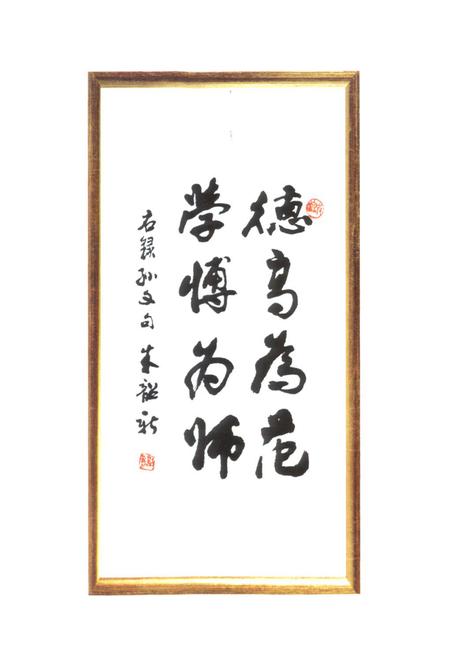 德高為范
学博为师
右录孙文句 朱韶新